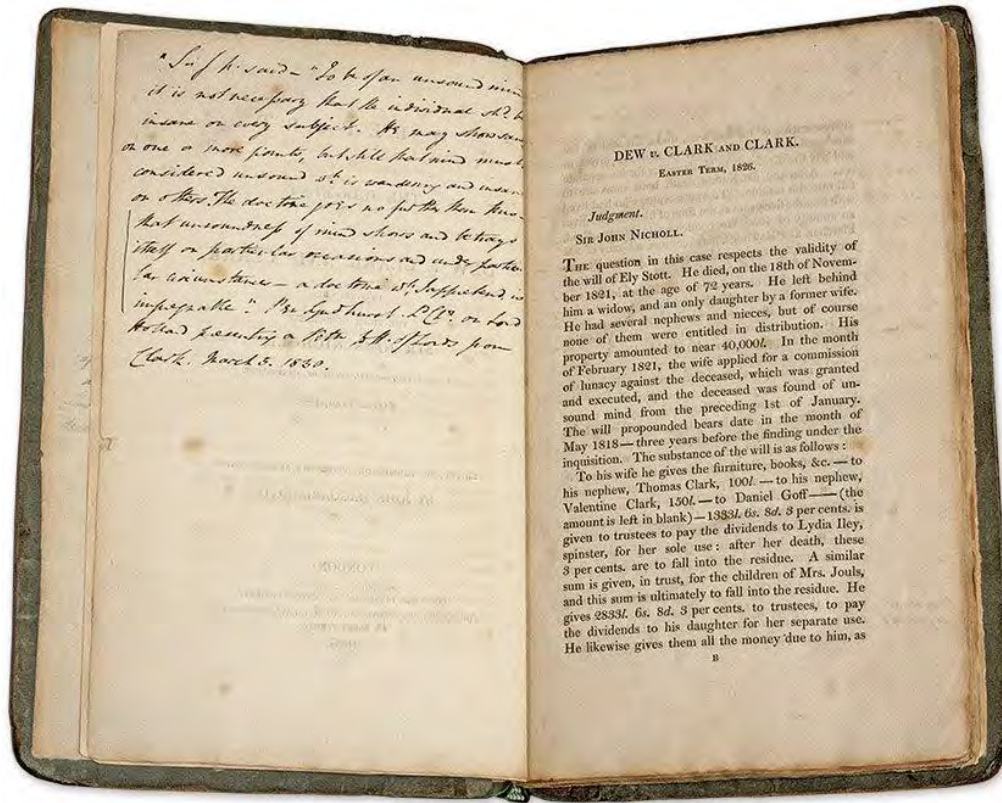 "Sir J. N. said – "To be of an unsound mind
it is not necessary that the individual shd. be
insane on every subject. He may show sane
on one or more points, but still that mind must be
considered unsound wh. is wandering and insane
on others. The doctrine goes no further than this –
that unsoundness of mind shows and betrays
itself on particular occasions and under particu-
lar circumstances – a doctrine wh. I apprehend is
impregnable". Per Lyndhurst. L. Cr. on Lord
Holland presenting a Petn. to H. of Lords from
Clark. March 3. 1830.
DEW v. CLARK AND CLARK.
EASTER TERM, 1826.
Judgment.
SIR JOHN NICHOLL.
THE question in this case respects the validity of
the will of Ely Stott. He died, on the 18th of Novem-
ber 1821, at the age of 72 years. He left behind
him a widow, and an only daughter by a former wife.
He had several nephews and nieces, but of course
none of them were entitled in distribution. His
property amounted to near 40,000l. In the month
of February 1821, the wife applied for a commission
of lunacy against the deceased, which was granted
and executed, and the deceased was found of un-
sound mind from the preceding 1st of January.
The will propounded bears date in the month of
May 1818—three years before the finding under the
inquisition. The substance of the will is as follows:
To his wife he gives the furniture, books, &c. — to
his nephew, Thomas Clark, 100l. — to his nephew,
Valentine Clark, 150l. — to Daniel Goff —— (the
amount is left in blank) — 1333l. 6s. 8d. 3 per cents. is
given to trustees to pay the dividends to Lydia Iley,
spinster, for her sole use: after her death, these
3 per cents. are to fall into the residue. A similar
sum is given, in trust, for the children of Mrs. Jouls,
and this sum is ultimately to fall into the residue. He
gives 2833l. 6s. 8d. 3 per cents. to trustees, to pay
the dividends to his daughter for her separate use.
He likewise gives them all the money due to him, as
B
LONDON: